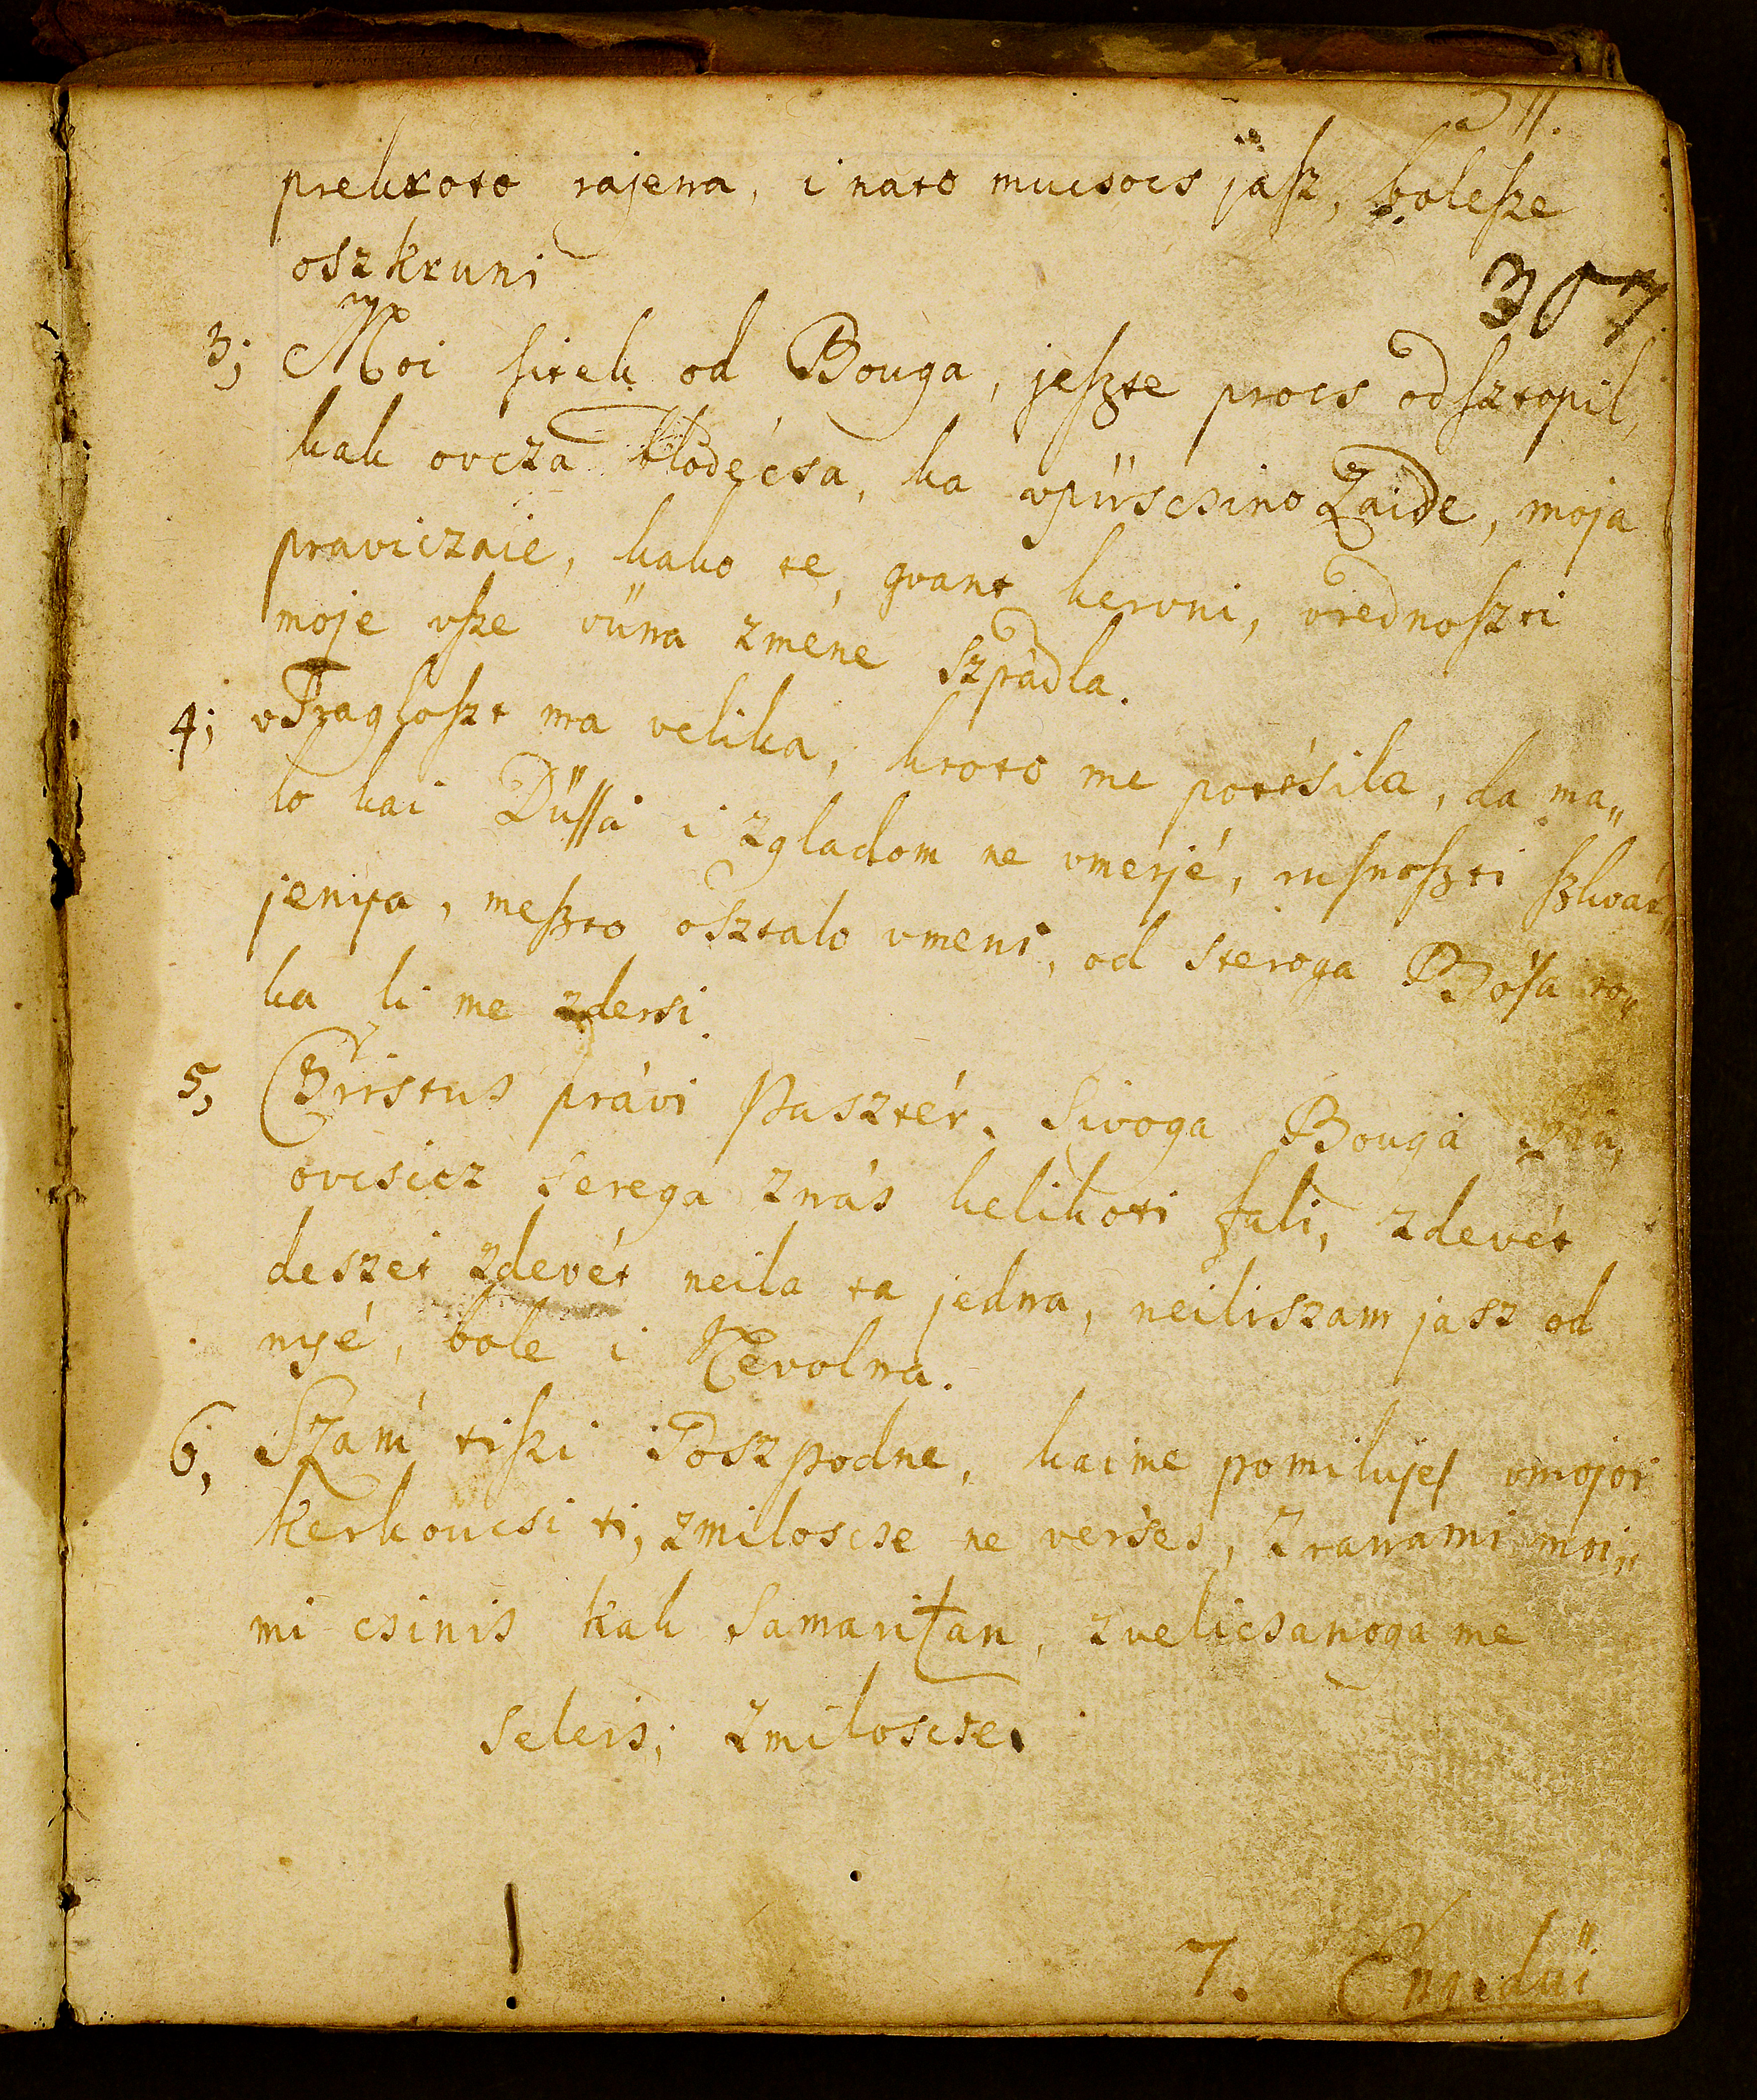 311.
prekroto rajena, i nato mucsocs jaſz, boleſze
oszkruni
307
3; Moi sitek od Bouga, jeſzte procs odſztopil,
kak ovcza blodécsa, ka vpüscsino Zaide, moja
praviczaie, kako te, gvant kervni, vrednoſzti
moje vſze vüna zmene szpádla.
4; vTragloſzt ma velika, kroto me potésila, da ma„
lo kai Düſſa i zgladom ne vmerjé, rusnoſzti ſzkvár„
jenya, meſzto osztalo vmeni, od steroga Bósa ro„
ka li me zdersi.
5, Christus právi Pasztér. Sivoga Bougá Szin,
ovcsicz serega znás kelikoti fali, zdevét
deszét zdevét neila ta jedna, neiliszam jasz od
nyé, bole i Nevolna.
6, Szam tiſzi Goszpodne, kaime pomilüjes vmojoi
kerkoucsi ti, zmiloscse ne verses, Zranami moi„
mi csinis kak Samaritan, zvelicsanoga me
seleis; zmiloscse.
7. Engedüi